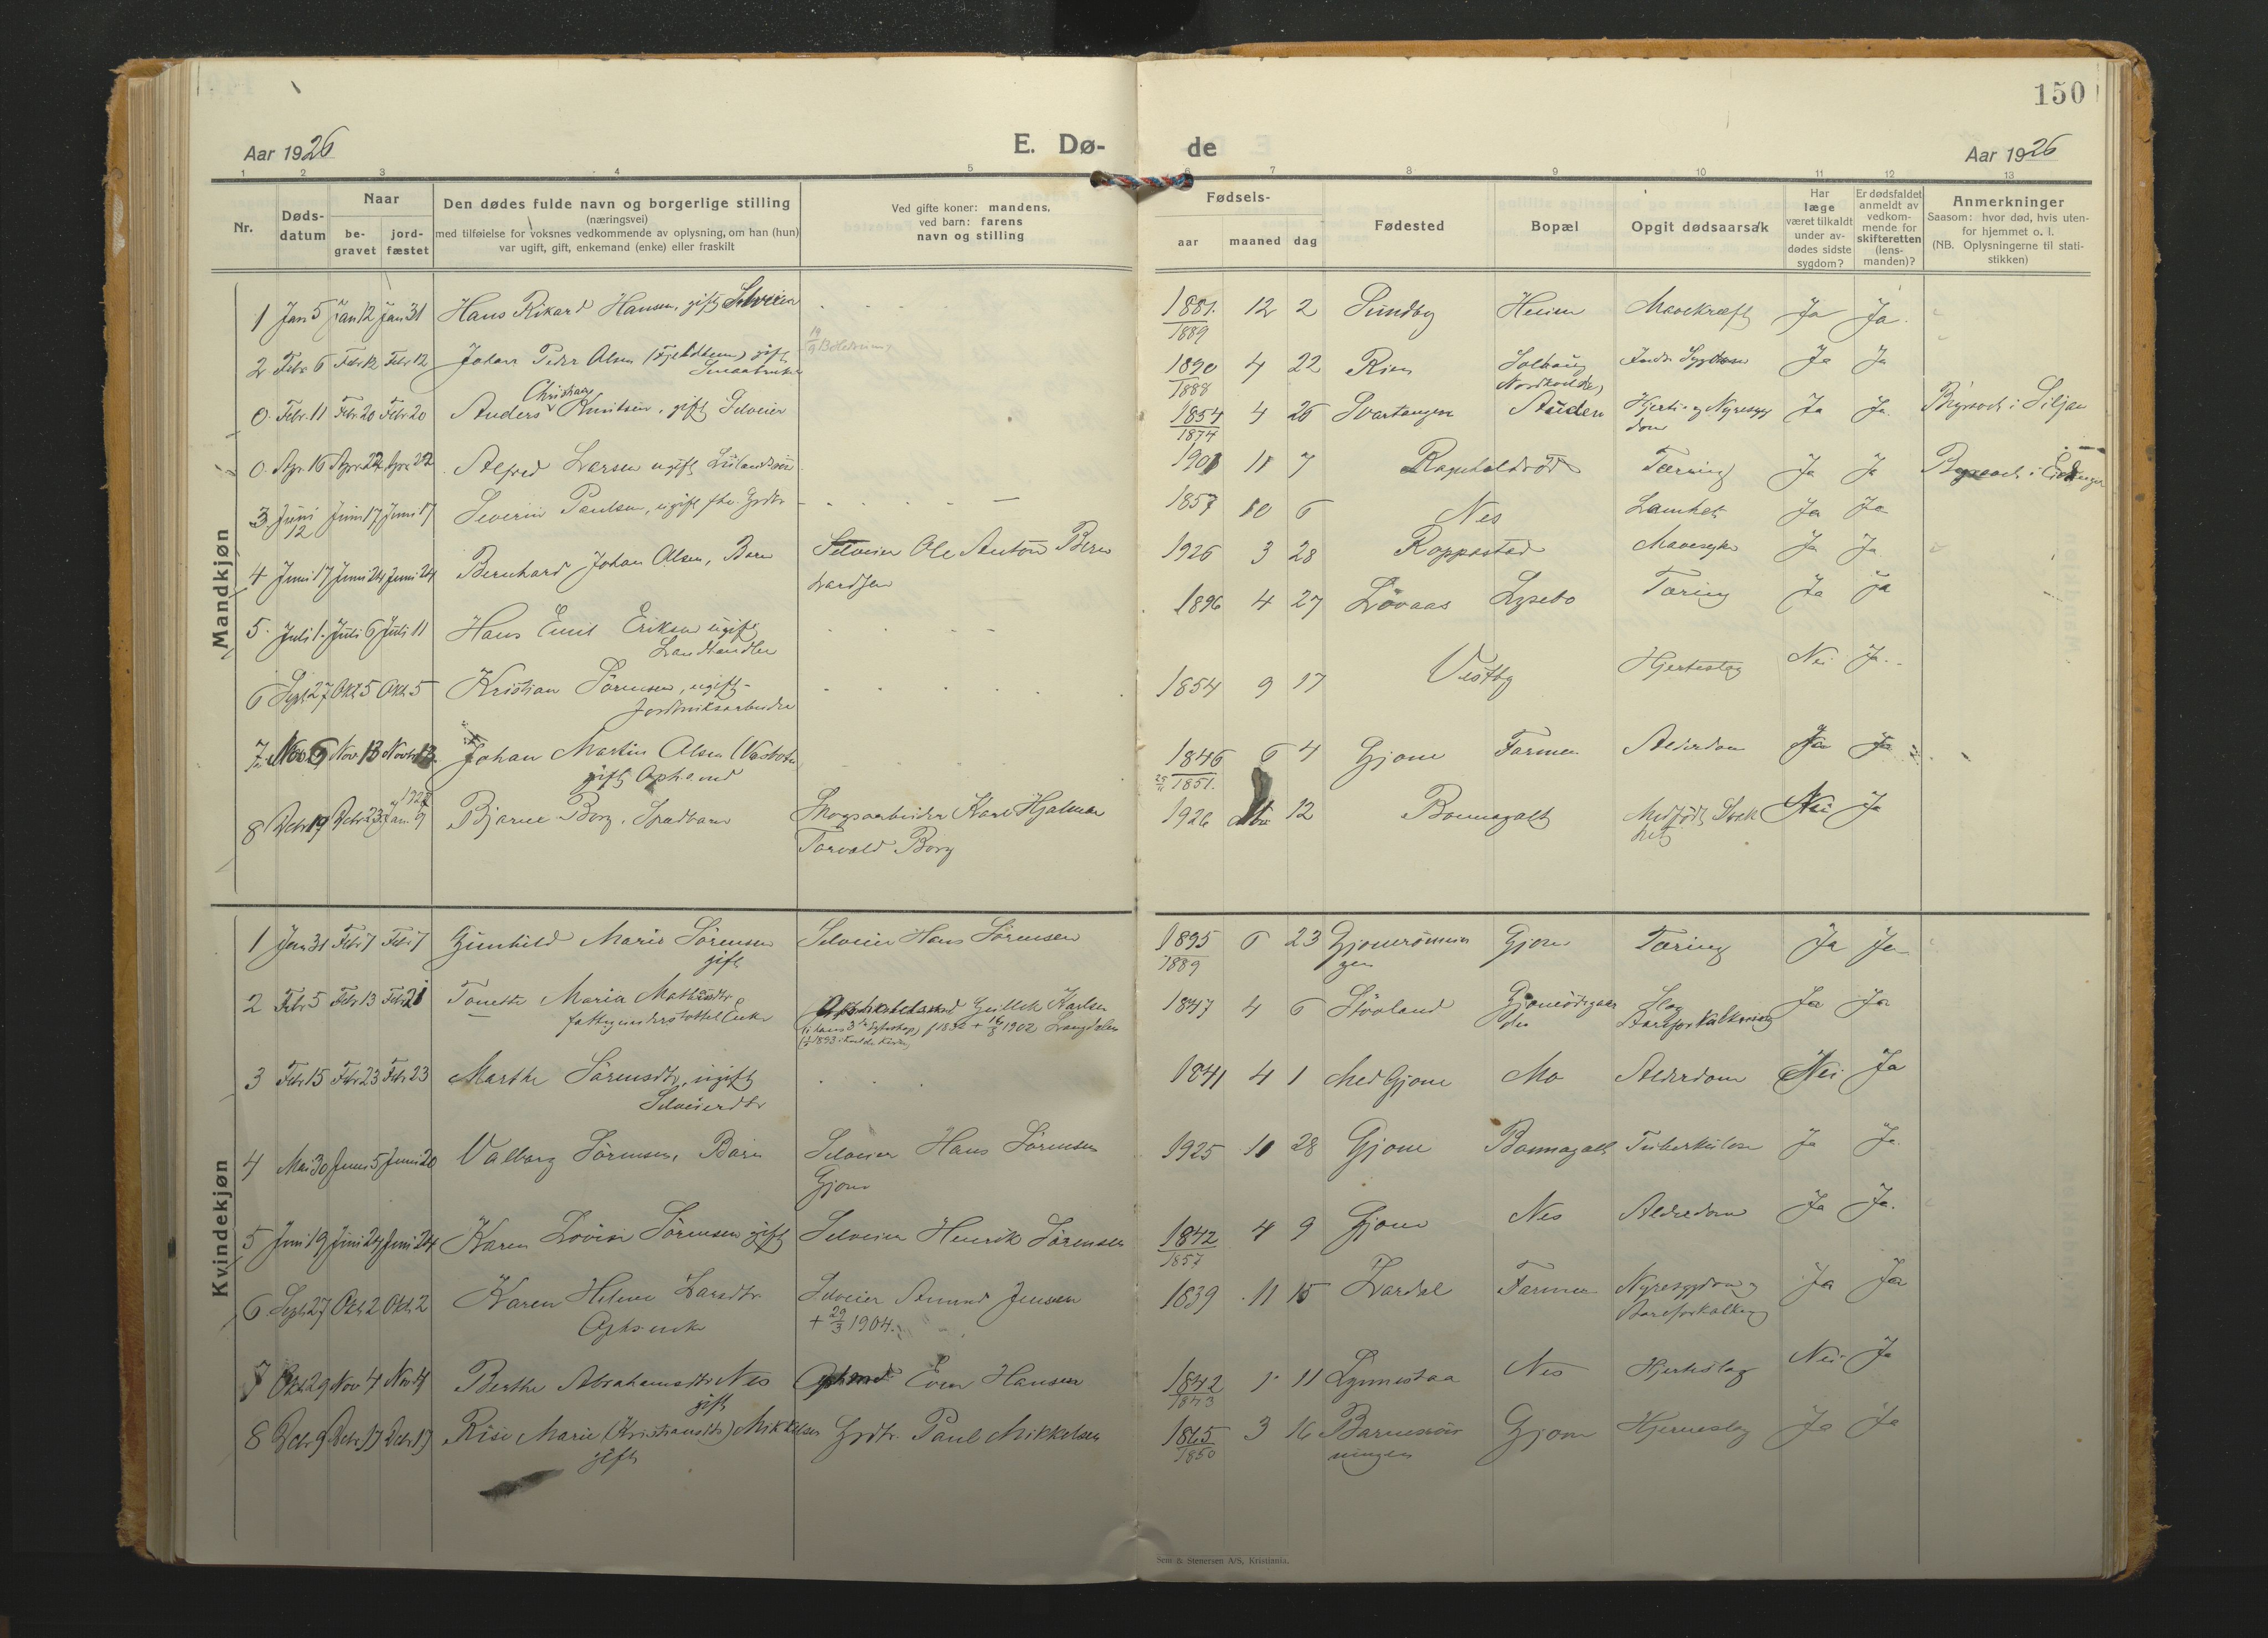 150
Aar 1926
E. Dø-
de
Aar 1926
1 2 3 4 5 6 7 8 9 10 11 12 13
Nr.
Døds-
datum
Naar
be-
gravet
jord-
fæstet
Den dødes fulde navn og borgerlige stilling
(næringsvei)
med tilføielse for voksnes vedkommende av oplysning, om han (hun)
var ugift, gift, enkemand (enke) eller fraskilt
Ved gifte koner: mandens,
ved barn: farens
navn og stilling
Fødsels-
aar maaned dag
Fødested
Bopæl
Opgit dødsaarsak
Har
læge
været tilkaldt
under av-
dødes sidste
sygdom?
Er dødsfaldet
anmeldt av
vedkom-
mende for
skifteretten
(lens-
manden)?
Anmerkninger
Saasom: hvor død, hvis uten-
for hjemmet o. l.
(NB. Oplysningerne til stati-
stikken)
Mandkjøn
1 Jan 5 Jan 12 Jan 31 Hans Rikard Hansen, gift Selveier 1881. 12 2 Sundby Heien Mavekræft Ja Ja.
1889
2 Febr 6 Febr 12 Febr 12 Johan Peder Olsen gift 1890 4 22 Rien Solhaug Ja Ja
Smaabruker 1888
Christian
0. Febr. 11 Febr 20 Febr 20 Anders Knutsen, gift Selveier 1854 4 26 Svartangen Auden Hjerte- og Nyresyg Ja Ja. i Siljan
1874 dom
0. Apr. 16 Apr. 22 Apr. 22 Alfred Larsen ugift 190 7 Tæring Ja Ja i Eidanger
3 Juni Juni 17 Juni 17 Severin Paulsen, ugift fhv. Grdbr 1857 10 6 Nes Lamhet Ja Ja
12
4 Juni 17 Juni 24 Juni 24 Bernhard Johan Olsen, Barn Selveier Ole Anton Bern 1926 3 28 Roppestad Mavesyke Ja Ja
hardsen
5. Juli 1. Juli 6 Juli 11 Hans Emil Eriksen ugift 1896 4 27 Løvaas Lysebo Tæring Ja Ja
Landhandler
6 Sept 27 Okt 5 Okt 5 Kristian Sørensen, ugift 1854 9 17 Vestby Hjerteslag Nei Ja.
Jordbruksarbeider
7. Nov 6 Nov 13 Novbr 13. Johan Martin Olsen 1846 6 4 Gjone Farmen Alderdom Ja Ja
gift Ophsmd 1851.
8 Debr 19 Debr 23 Jan 9 Bjarne Borg, Spædbarn Skogsarbeider Karl Hjalmar 1926 12 Bonnagalt Medfødt Svak Nei Ja
Torvald Borg het
Kvindekjøn
1 Jan 31 Febr 7 Febr 7 Gunhild Marie Sørensen Selveier Hans Sørensen 1895 6 23 Gjone Tæring Ja Ja
gift 1889
2 Febr 5 Febr 13 Febr 21 Tonette Maria fattigunderstøttet Enke Gullek Karlsen 1847 4 6 Støvland Slag Ja Ja
1902 Aareforkalkning
3 Febr 15 Febr 23 Febr 23 Marthe Sørensdtr, ugift 1841 4 1 Med Gjone Mo Alderdom Nei Ja
Selveierdtr
4 Mai 30 Juni 5 Juni 20 Valborg Sørensen, Barn Selveier Hans Sørensen 1925 11 28 Gjone Bonnagalt Tuberkulose Ja Ja.
Gjone
5 Juni 19 Juni 24 Juni 24 Karen Lovise Sørensen gift Selveier Henrik Sørensen 1842 4 9 Gjone Nes Alderdom Ja Ja.
1857
6 Sept 27 Okt 2 Okt 2 Karen Helene Larsdtr Selveier Amund Jensen 1839 11 15 Lardal Farmen Nyresygdom og Ja Ja
Ophs. enke + 29/3 1904. Aareforkalkning
7 Okt 29 Nov 4 Nov 4 Berthe Abrahamsdtr Nes Ophsmd Even Hansen 1842 1 11 Nes Hjerteslag Nei Ja
gift 1843
8 Debr 9 Debr 17 Debr 17 Risi Marie (Kristiansdtr) Mikkelsen Grdbr. Paul Mikkelsen 1865 3 16 Gjone Hjerneslag Ja Ja
gift 1850
Sem & Stenersen A/S, Kristiania.